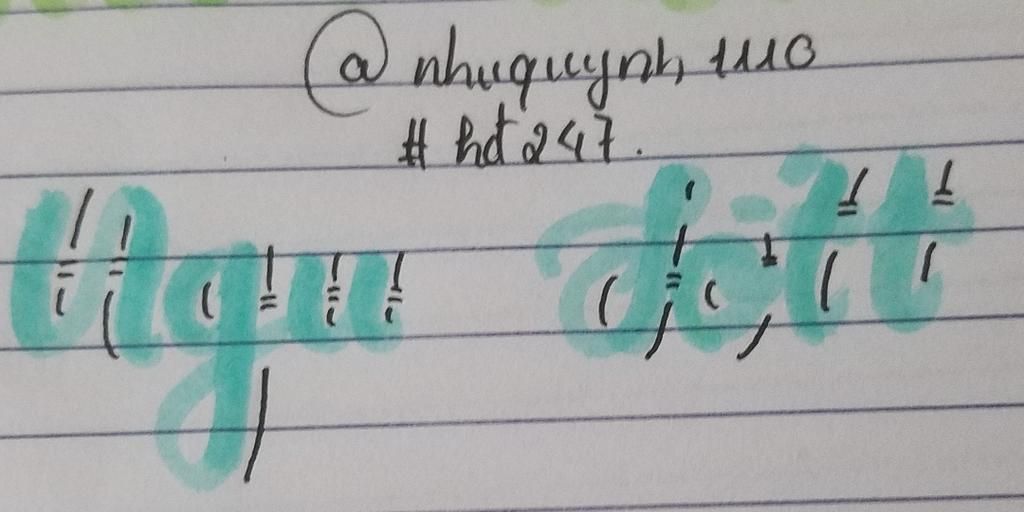 @ nhuquynh 1110
# hđ 247.
Ngu